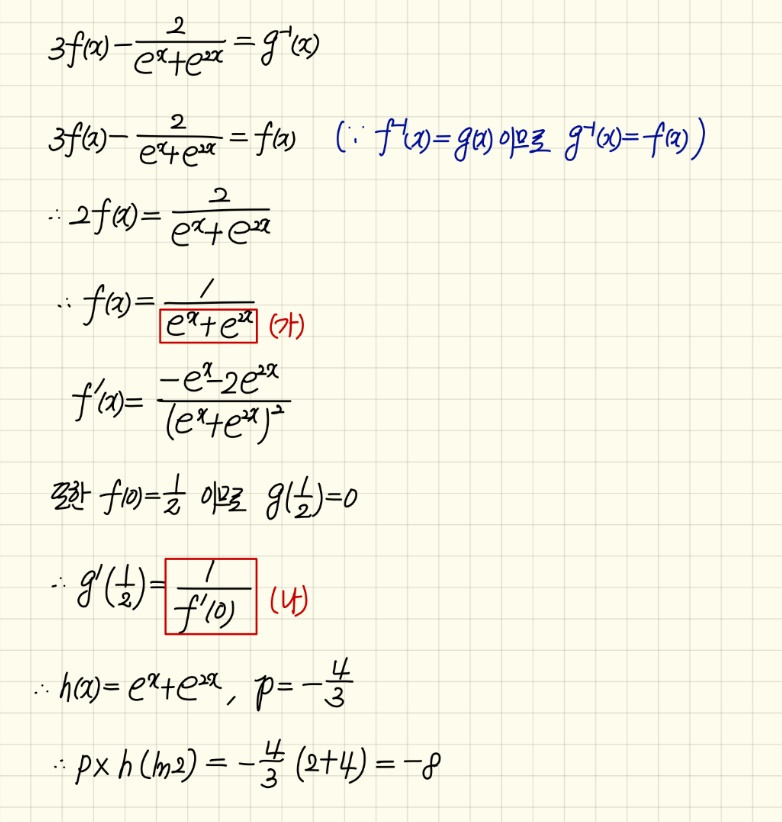 3f(x) - 2/(eˣ+e²ˣ) = g⁻¹(x)
3f(x) - 2/(eˣ+e²ˣ) = f(x) (∵ f⁻¹(x)=g(x) 이므로 g⁻¹(x)=f(x))
∴ 2f(x) = 2/(eˣ+e²ˣ)
∴ f(x) = 1/(eˣ+e²ˣ) (가)
f'(x) = (-eˣ-2e²ˣ)/(eˣ+e²ˣ)²
또한 f(0)=1/2 이므로 g(1/2)=0
∴ g'(1/2) = 1/f'(0) (나)
∴ h(x) = eˣ+e²ˣ, p = -4/3
∴ p × h(ln2) = -4/3 (2+4) = -8